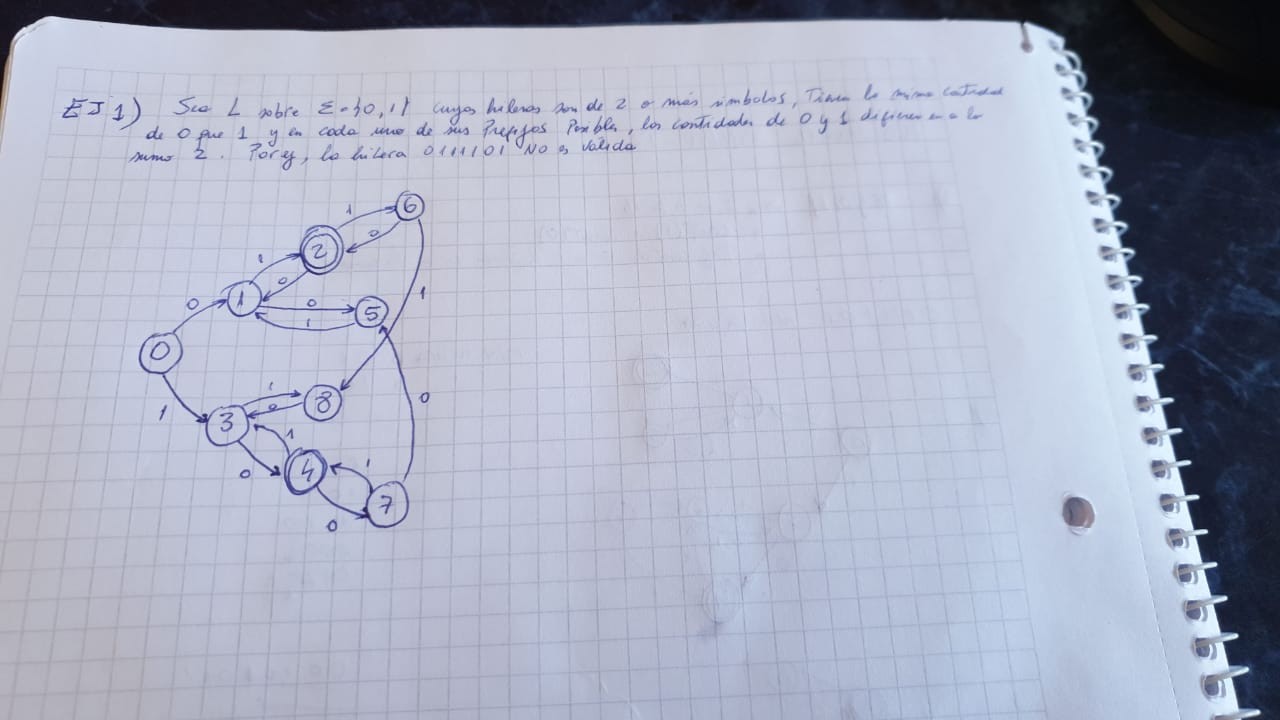 EJ 1) Sea L sobre Σ={0,1} cuyas hileras son de 2 o más símbolos, Tienen la misma cantidad
de 0 que 1 y en cada uno de sus Prefijos Posibles, las cantidades de 0 y 1 difieren en a lo
sumo 2. Por ej, la hilera 0111101 NO es válida
6
1
0
2
1
0
1
0
1
0
5
1
0
1
8
1
0
3
1
0
1
4
1
7
0
0